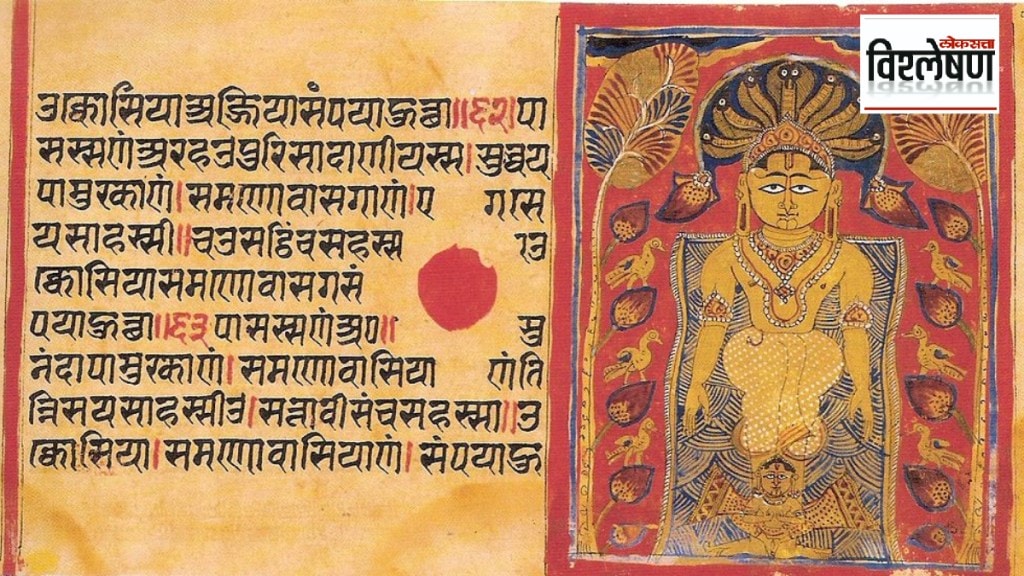 लोकसत्ता
विश्लेषण
उक्कोसिया अज्जियासंपयाहुत्था॥६२।पा
सस्सणं अरहउपुरिसादाणीयस्स।सुव्वय
पामुरकाणं। समणोवासगाणं।ए गास
यसाहस्सी॥चउसट्ठिंचसहस्स ाउ
क्कोसियासमणोवासगसं
पयाहुत्था॥६३॥पासस्सणंअ०॥ सु
नंदापामुरकाणं। समणोवासिया णंति
न्निसयसाहस्सीउ।सत्तावीसंचसहस्सा॥उ
क्कोसिया।समणोवासियाणं। संपयाहु